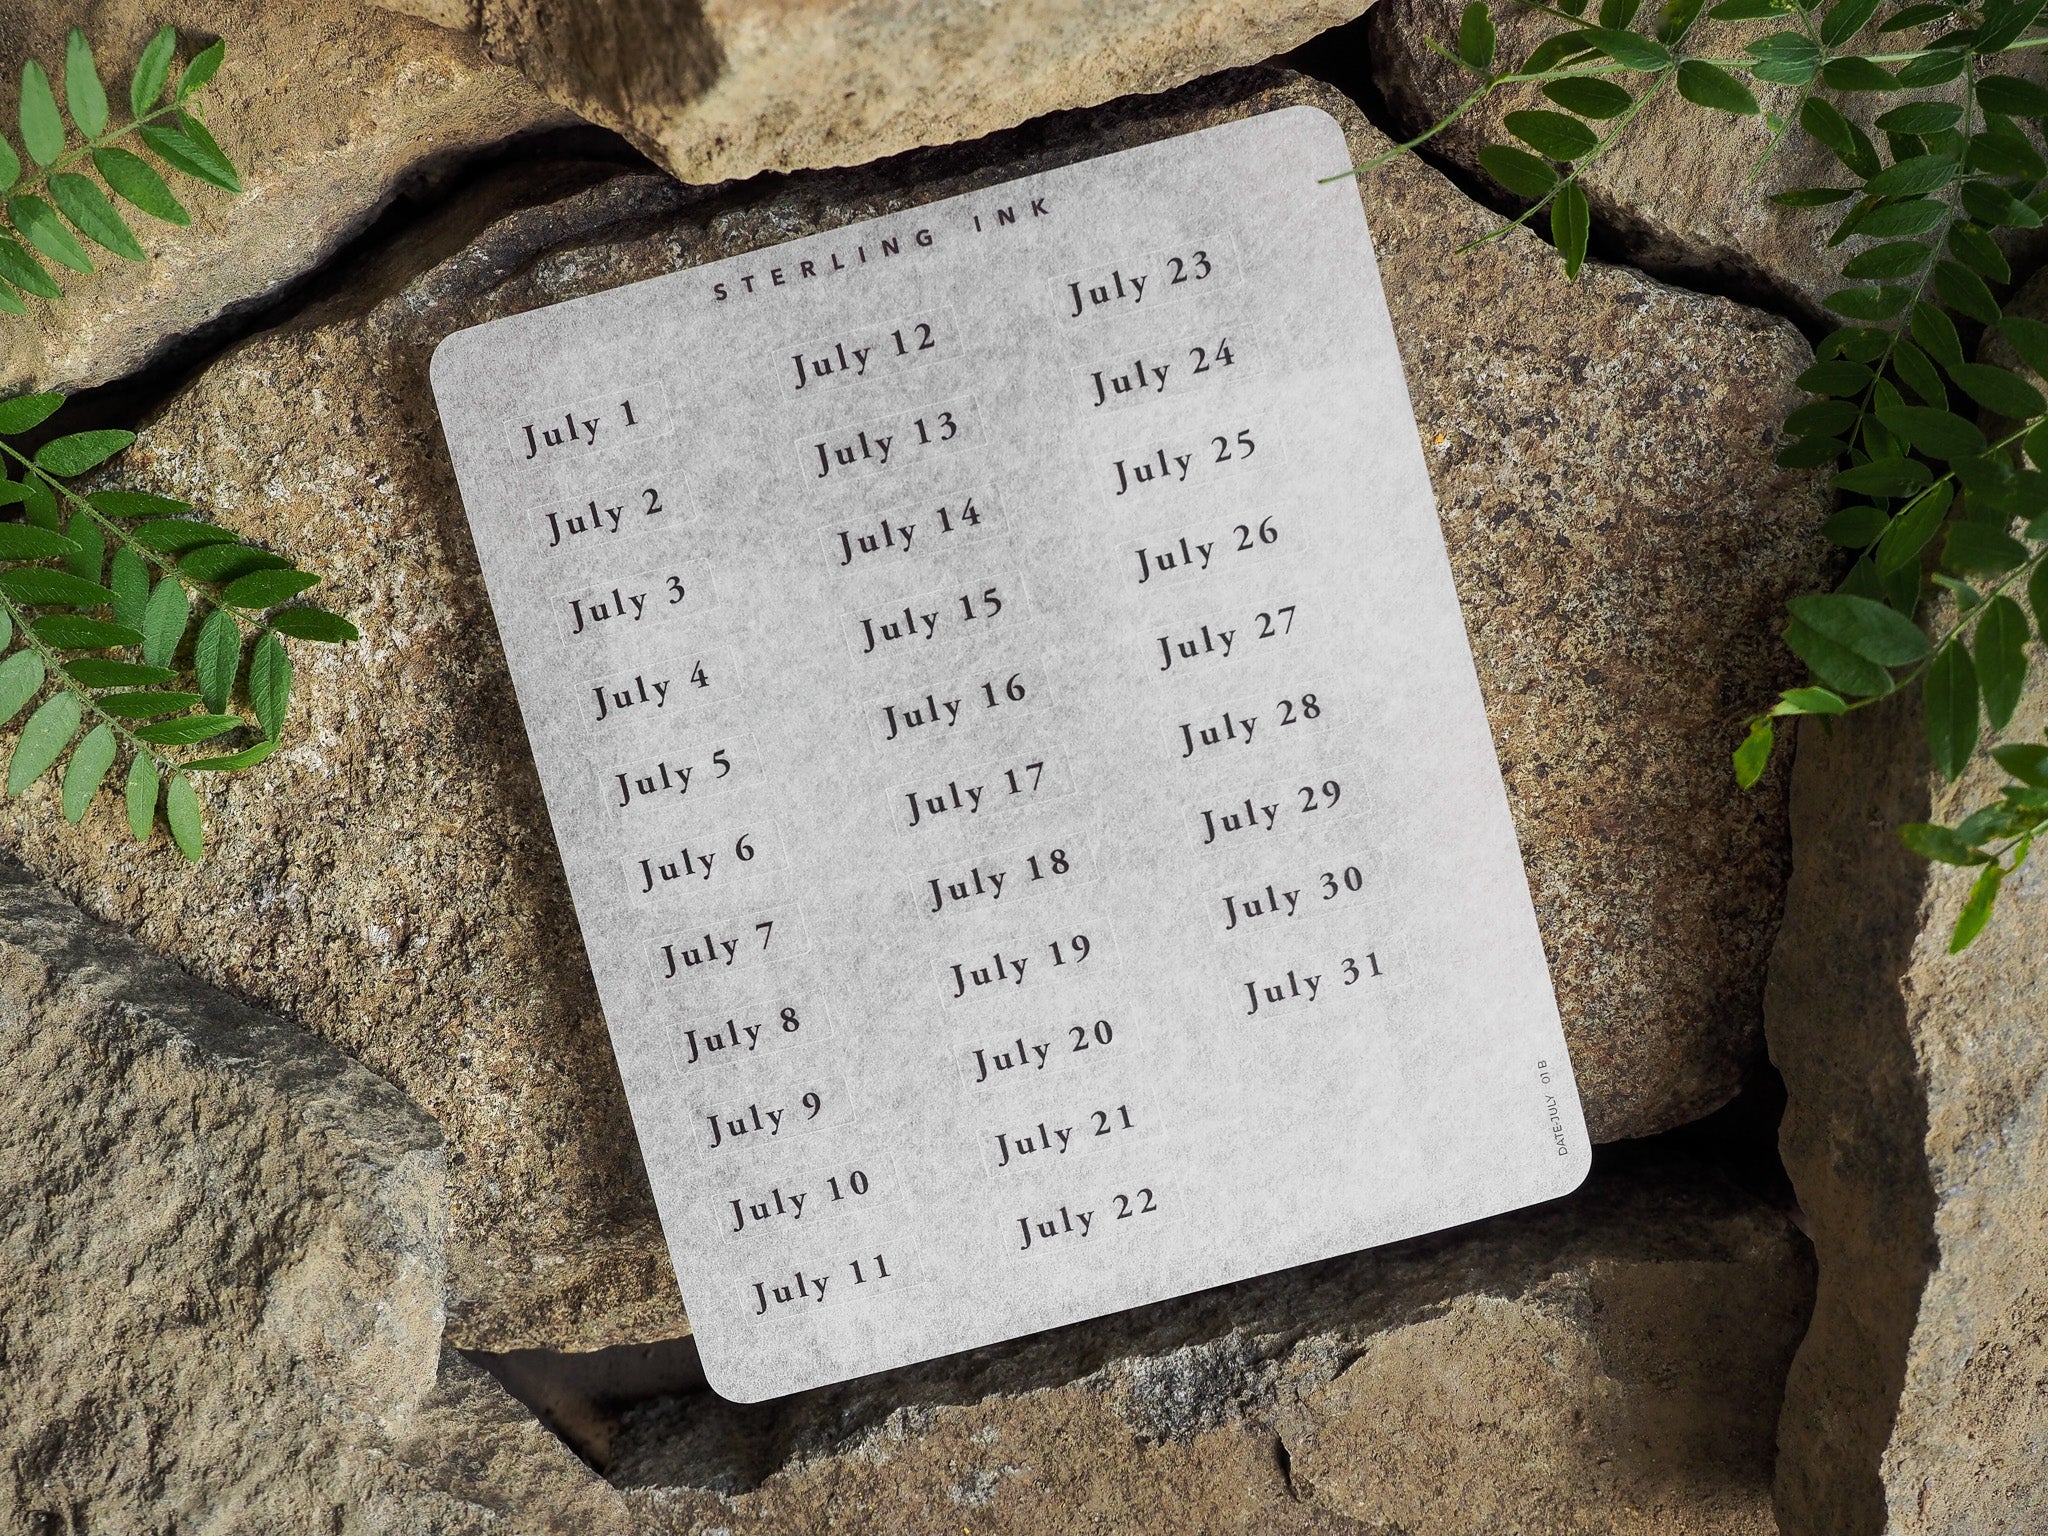 STERLING INK
July 1
July 2
July 3
July 4
July 5
July 6
July 7
July 8
July 9
July 10
July 11
July 12
July 13
July 14
July 15
July 16
July 17
July 18
July 19
July 20
July 21
July 22
July 23
July 24
July 25
July 26
July 27
July 28
July 29
July 30
July 31
DATE-JULY 01 B